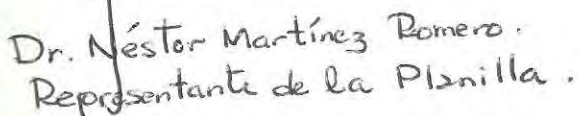 Dr. Néstor Martínez Romero.
Representante de la Planilla.